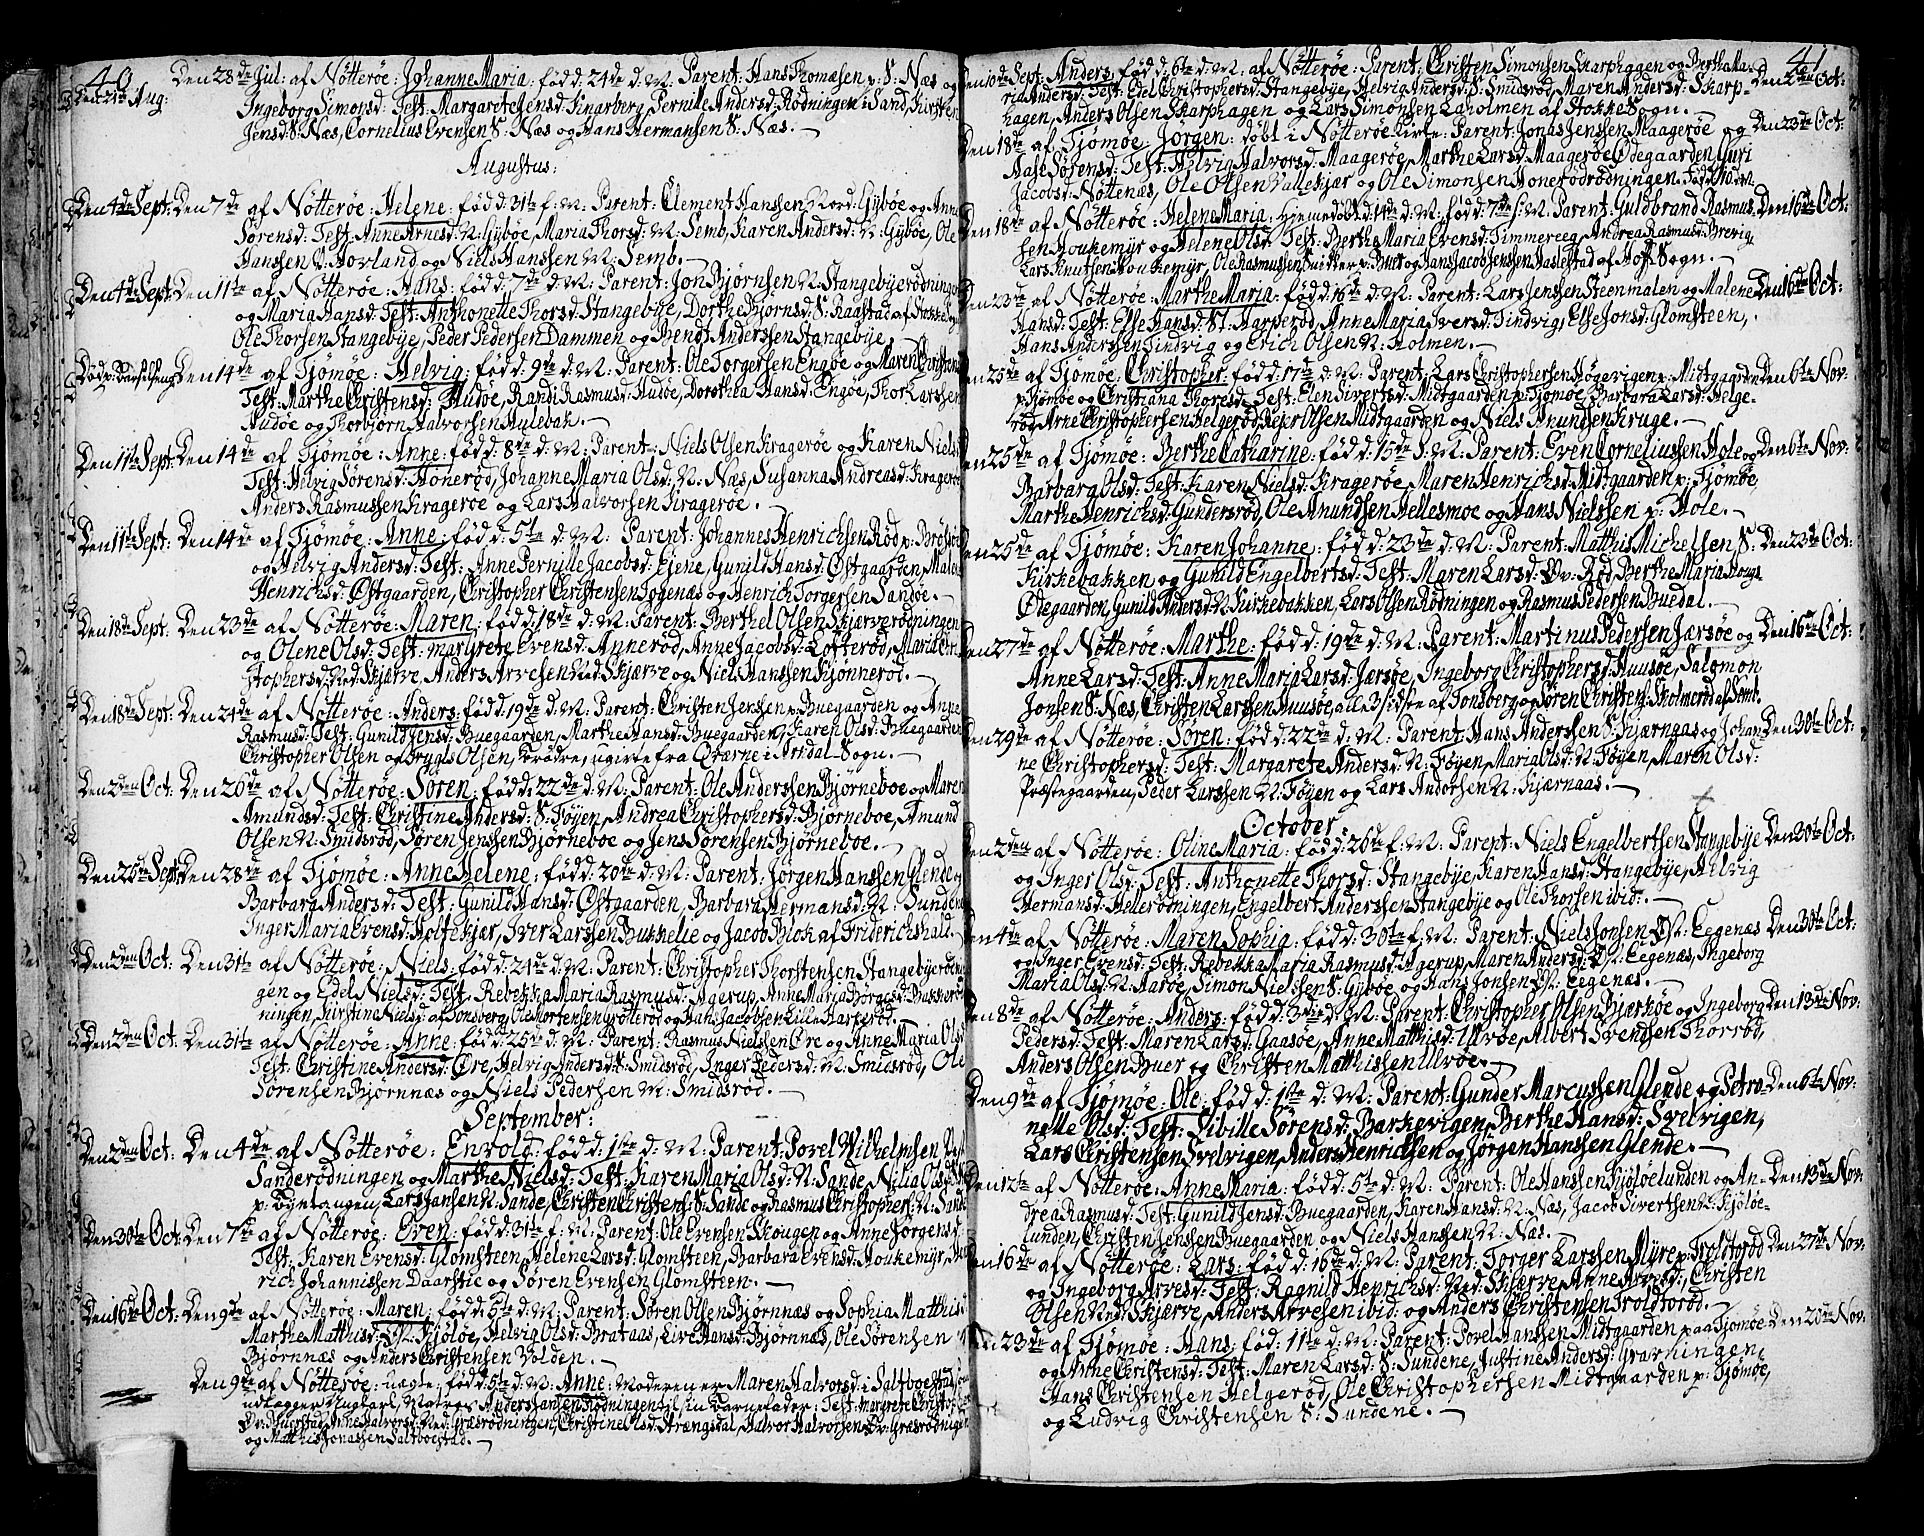 40
Den 28de Jul: af Nøtterøe: Johanne Maria: född: 24de d: M: Parent: Hans Thomæsen p: S: Næs og
Den 21de Aug:
Ingeborg Simonsd: Test: Margarete Jensd: Knarberg, Pernille Andersd: Rödningen i Sand, Kirsten
Jensd: S: Næs, Cornelius Evensen S: Næs og Hans Hermansen S: Næs. —
Augustus:
Den 4de Sept: Den 7de af Nøtterøe: Helene: född: 31te f: M: Parent: Clement Hanssen Nord: Gÿböe og Anne
Sörensd: Test: Anne Arnesd: N: Gÿböe, Maria Thorsd: N: Semb, Karen Andersd: N: Gÿböe, Ole
Hanssen Hovland og Niels Hanssen N: Semb. —
Den 4de Sept: Den 11te af Nøtterøe: Hans: född: 7de d: M: Parent: Jon Björnsen N: Stangebÿerödningen
og Maria Hansd: Test: Anthonette Thorsd: Stangebÿe, Dorthe Björnsd: S: Raastad af Stokke
Ole Thorsen Stangebÿe, Peder Pedersen Dammen og Bendt Anderssen Stangebÿe.
Död p: Barselseng Den 14de af Tjömöe: Helvig: född: 9de d: M: Parent: Ole Torgersen Engöe og Maren Christens
Test: Marthe Christensd: Hudöe, Randi Rasmusd: Hudöe, Dorothea Hansd: Engöe, Thor Larssen
Hudöe og Thorbjörn Halvorsen Hulebak. —
Den 11te Sept: Den 14de af Tjömöe: Anne: född: 8de d: M: Parent: Niels Olsen Kragerøe og Karen Niels
Test: Helvig Sörensd: Honeröd, Johanne Maria Olsd: N: Næs, Susanna Andreasd: Kragerøe
Anders Rasmussen Kragerøe og Lars Halvorsen Kragerøe. —
Den 11te Sept: Den 14de af Tjömöe: Anne: född: 5te d: M: Parent: Johannes Henrichsen Röd p: Brötsöe
og Helvig Andersd: Test: Anne Pernille Jacobsd: Ejene, Gunild Hansd: Østgaarden, Malene
Henrichsd: Østgaarden, Christopher Christensen Sögenæs og Henrich Torgersen Sandöe. —
Den 18de Sept: Den 23de af Nøtterøe: Maren: född: 18de d: M: Parent: Berthel Olsen Skjærverödningen
og Olene Olsd: Test: Margrete Evensd: Anneröd, Anne Jacobsd: Lofteröd, Maria Chri-
stophersd: Ned: Skjærve, Anders Arvesen Ned: Skjærve og Niels Hanssen Kjönneröd. —
Den 18de Sept: Den 24de af Nøtterøe: Anders: född: 19de d: M: Parent: Christen Jenssen p: Buegaarden og Anne
Rasmusd: Test: Gunild Jensd: Buegaarden, Marthe Hansd: Buegaarden, Karen Olsd: Buegaarden
Christopher Olsen og Trÿgls Olsen, Brödre, ugivte fra Qværne i Arrdal Sogn. —
Den 2den Oct: Den 26de af Nøtterøe: Sören: född: 22de d: M: Parent: Ole Anderssen Björneboe og Maren
Amundsd: Test: Christine Andersd: S: Föÿen, Andrea Christophersd: Björneboe, Amund
Olsen N: Smidsröd, Sören Jenssen Björneboe og Jens Sörensen Björneboe. —
Den 25de Sept: Den 28de af Tjömöe: Anne Helene: född: 20de d: M: Parent: Jörgen Hanssen Glende
Barbara Andersd: Test: Gunild Hansd: Østgaarden, Barbara Hermansd: N: Sundene
Inger Maria Evensd: Holtekjær, Iver Larssen Bukkelie og Jacob Blok af Friderichshald. —
Den 2den Oct: Den 31te af Nøtterøe: Niels: född: 21de d: M: Parent: Christopher Thorstensen Stangebÿeröd-
gen og Edel Nielsd: Test: Rebekka Maria Rasmusd: Agerup, Anne Maria Börgesd: Bakkerød
ningen, Kirstina Nielsd: af Tonsberg, Ole Mortensen Grötteröd og Hans Jacobsen Lille Harperöd. —
Den 2den Oct: Den 31te af Nøtterøe: Anne: född: 25de d: M: Parent: Rasmus Nielssen Øre og Anne Maria Olsd
Test: Christine Andersd: Øre, Helvig Andersd: S: Smidsröd, Inger Pedersd: N: Smidsröd, Ole
Sörensen Björnnæs og Niels Pedersen N: Smidsröd. —
September:
Den 2den Oct: Den 4de af Nøtterøe: Envold: född: 1ste d: M: Parent: Povel Wilhelmsen
Sanderödningen og Marthe Nielsd: Test: Karen Maria Olsd: N: Sande, Nilia Olsd:
p: Bÿetangen, Lars Jansen N: Sande, Christen Christens: S: Sande og Rasmus Christophers: N: Sande
Den 30te Oct: Den 7de af Nøtterøe: Even: född: 31te f: M: Parent: Ole Evensen Skougen og Anne Jörgensd:
Test: Karen Evensd: Glomsteen, Helene Larsd: Glomsteen, Barbara Evensd: Houkemÿr,
rich Johannissen Daarstie og Sören Evensen Glomsteen. —
Den 16de Oct: Den 9de af Nøtterøe: Maren: född: 5te d: M: Parent: Sören Olsen Björnnæs og Sophia Matthis
Marthe Matthisd: Kjölöe, Helvig Olsd: Brataas, Live Hansd: Björnnæs, Ole Sörensen
Björnnæs og Anders Christensen Volden. —
Den 9de af Nøtterøe: uægte, född: 5te d: M: Anne: Moderen er Maren Halvorsd: i Saltboestad,
udlægger Ungkarl Anders Jansen Rödningen til sin Barnefader: Test: Margrete Christoph
Anne Halvorsd: Ned: Græsrödningen, Christine Olsd: Strængsdal, Halvor Halvorsen Græsrödningen
og Matthis Jonassen Saltboestad. —
41
Den 10de Sept: Anders: född: 6te d: M: af Nøtterøe: Parent: Christen Simonsen Skarphagen og Berthe Ma- Den 2den Oct:
ria Andersd: Test: Edel Christophersd: Stangebÿe, Helvig Andersd: S: Smidsröd, Maren Andersd: Skarp-
hagen, Anders Olsen Skarphagen og Lars Simonsen Laholmen af Stokke Sogn. —
Den 18de af Tjömöe: Jörgen: döbt i Nøtterøe Kirke: Parent: Jonas Jenssen Maageröe og Den 23de Oct:
Aase Sörensd: Test: Helvig Halvorsd: Maageröe, Marthe Larsd: Maageröe Ødegaarden, Guri
Jacobsd: Nöttenæs, Ole Olsen Vallekjær og Ole Simonsen Honerödrödningen.
Den 18de af Nøtterøe: Helene Maria: Hjemedöbt d: 14de d: M: född: 7de f: M: Parent: Guldbrand Rasmus- Den 16de Oct:
sen Houkemÿr og Helene Olsd: Test: Berthe Maria Evensd: Timmereeg, Andrea Rasmusd: Brevig,
Lars Knutsen Houkemÿr, Ole Rasmussen Snikker p: Buer og Hans Jacob Jenssen Hasletad af Hoff Sogn. —
Den 23de af Nøtterøe: Marthe Maria: född: 18de d: M: Parent: Lars Jenssen Steenmalen og Malene Den 16de Oct:
Hansd: Test: Else Hansd: St: Harperöd, Anne Maria Iversd: Tindvig, Else Jonsd: Glomsteen,
Hans Anderssen Tindvig og Erich Olsen N: Holmen. —
Den 25de af Tjömöe: Christopher: född: 17de d: M: Parent: Lars Christophersen Högevigen p: Midtgaarden Den 6te Nov:
p: Tjömöe og Christiana Thoresd: Test: Elen Sivertsd: Midtgaarden p: Tjömöe, Barbara Larsd: Helge-
röd, Arne Christophersen Helgeröd, Rejer Olsen Midtgaarden og Niels Anundsen Kruge. —
Den 25de af Tjömöe: Berthe Catharine: född: 15de d: M: Parent: Even Corneliussen Hole og Den 6te Nov:
Barbara Olsd: Test: Karen Nielsd: Kragerøe, Maren Henrichsd: Midtgaarden p: Tjömöe,
Marthe Henrichsd: Gundersröd, Ole Anundsen Hellesmoe og Hans Nielssen p: Hole. —
Den 25de af Tjömöe: Karen Johanne: född: 23de d: M: Parent: Matthis Michelsen S: Den 23de Oct:
Kirkebakken og Gunild Engelbertsd: Test: Maren Larsd: Øv: Röd, Berthe Maria
Ødegaarden, Gunild Andersd: N: Kirkebakken, Lars Olsen Rödningen og Rasmus Pedersen Buedal. —
Den 27de af Nøtterøe: Marthe: född: 19de d: M: Parent: Martinus Pedersen Jærsöe og Den 16de Oct:
Anne Larsd: Test: Anne Maria Larsd: Jærsöe, Ingeborg Christophersd: Huusöe, Salomon
Jonsen S: Næs, Christen Larssen Huusöe, alle 3 sidste af Tonsberg og Sören Christens: Skolmeröd af Semb.
Den 29de af Nøtterøe: Sören: född: 22de d: M: Parent: Hans Anderssen S: Kjærnaas og Johan- Den 30te Oct:
ne Christophersd: Test: Margarete Andersd: N: Föÿen, Maria Olsd: N: Föÿen, Maren Olsd:
Præstegaarden, Peder Larssen N: Föÿen og Lars Andorsen N: Kjærnaas. —
October:
Den 2den af Nøtterøe: Oline Maria: född: 26de f: M: Parent: Niels Engelbertsen Stangebÿe Den 30te Oct:
og Inger Olsd: Test: Anthonette Thorsd: Stangebÿe, Karen Hansd: Stangebÿe, Helvig
Hermansd: Hellerödningen, Engelbert Anderssen Stangebÿe og Ole Thorsen ibid: —
Den 4de af Nøtterøe: Maren Sophia: född: 30te f: M: Parent: Niels Jonsen Eegenæs Den 30te Oct:
og Inger Evensd: Test: Rebekka Maria Rasmusd: Agerup, Maren Andersd: Eegenæs, Ingeborg
Maria Olsd: N: Aaröe, Simon Nielssen S: Gÿböe og Hans Jonsen Eegenæs. —
Den 8de af Nøtterøe: Anders: född: 3die d: M: Parent: Christopher Olsen Bjerköe og Ingeborg Den 13de Nov:
Pedersd: Test: Maren Larsd: Gaasöe, Anne Matthisd: Ulvöe, Albert Svendsen Thorröd,
Anders Olsen Buer og Christen Matthissen Ulvöe. —
Den 9de af Tjömöe: Ole: född: 1ste d: M: Parent: Gunder Marcussen Glende og Petro- Den 6te Nov:
nelle Olsd: Test: Sibille Sörensd: Barkevigen, Berthe Hansd: Svelvigen,
Lars Christensen Svelvigen, Anders Henrichsen og Jörgen Hanssen Glende. —
Den 12te af Nøtterøe: Anne Maria: född: 5te d: M: Parent: Ole Hanssen Kjölöelunden og An- Den 13de Nov:
drea Rasmusd: Test: Gunild Jensd: Buegaarden, Karen Hansd: N: Næs, Jacob Sivertsen N: Kjölöe-
lunden, Christen Jenssen Buegaarden og Niels Hanssen N: Næs. —
Den 16de af Nøtterøe: Lars: född: 16de d: M: Parent: Torger Larssen Mÿre p: Troldtoröd Den 27de Nov:
og Ingeborg Arvesd: Test: Ragnild Henrichsd: Ned: Skjærve, Anne Arvesd: Christen
Olsen Ned: Skjærve, Anders Arvesen ibid: og Anders Christensen Troldtoröd. —
Den 23de af Tjömöe: Hans: föd: 11te d: M: Parent: Povel Hanssen Midtgaarden paa Tjömöe Den 20de Nov:
og Anne Christensd: Test: Maren Larsd: S: Sundene, Justine Andersd: Gravningen,
Hans Christensen Helgeröd, Ole Christophersen Midtgaarden p: Tjömöe,
og Ludvig Christensen S: Sundene. —